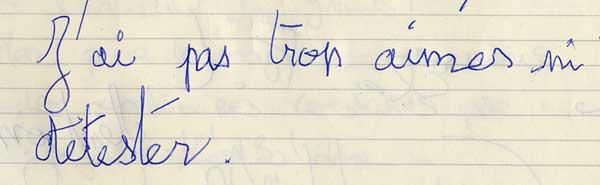 J'ai pas trop aimer ni
détester.